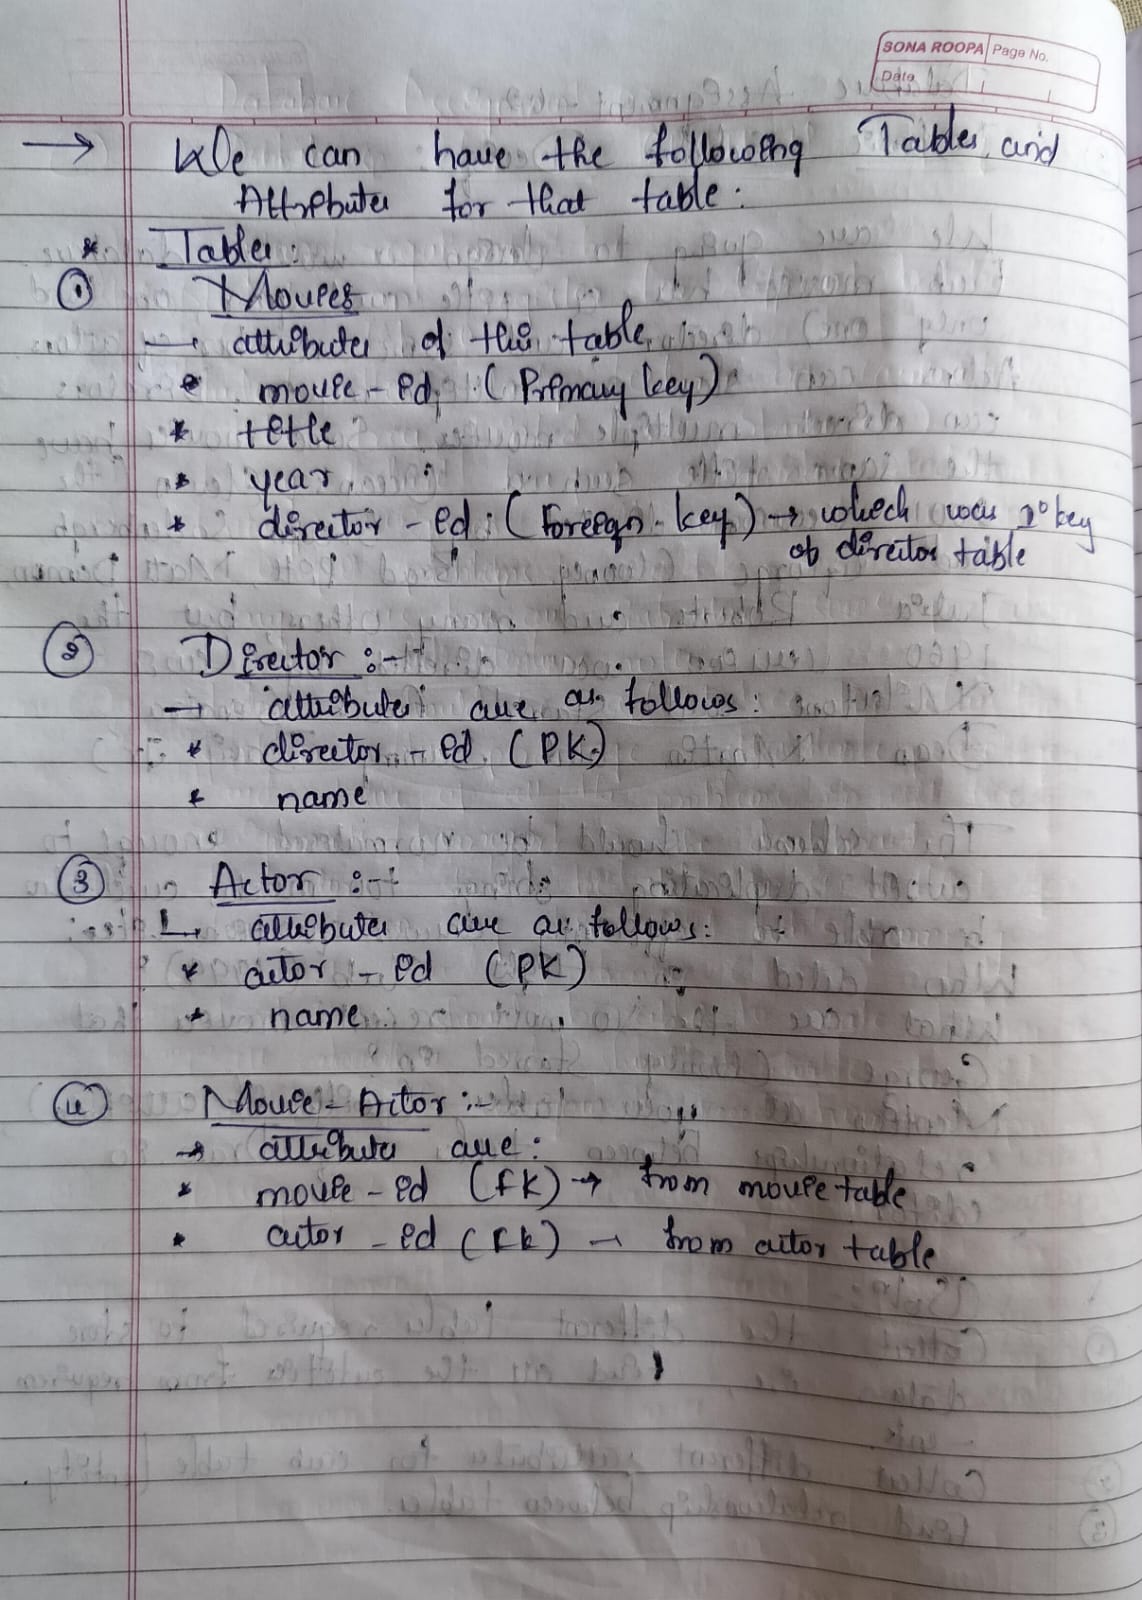 SONA ROOPA Page No.
Date
→ We can have the following Tables and
Attributes for that table:
* Tables:
① Movies
→ attributes of this table
* movie-id: (Primary key)
* title
* year
* director-id: (Foreign key) → which was 1° key
of director table
② Director :-
→ attributes are as follows:
* director-id (PK)
* name
③ Actor :-
↳ attributes are as follows:
* actor-id (PK)
* name
④ Movie-Actor :-
→ attributes are:
* movie-id (FK) → from movie table
* actor-id (FK) → from actor table